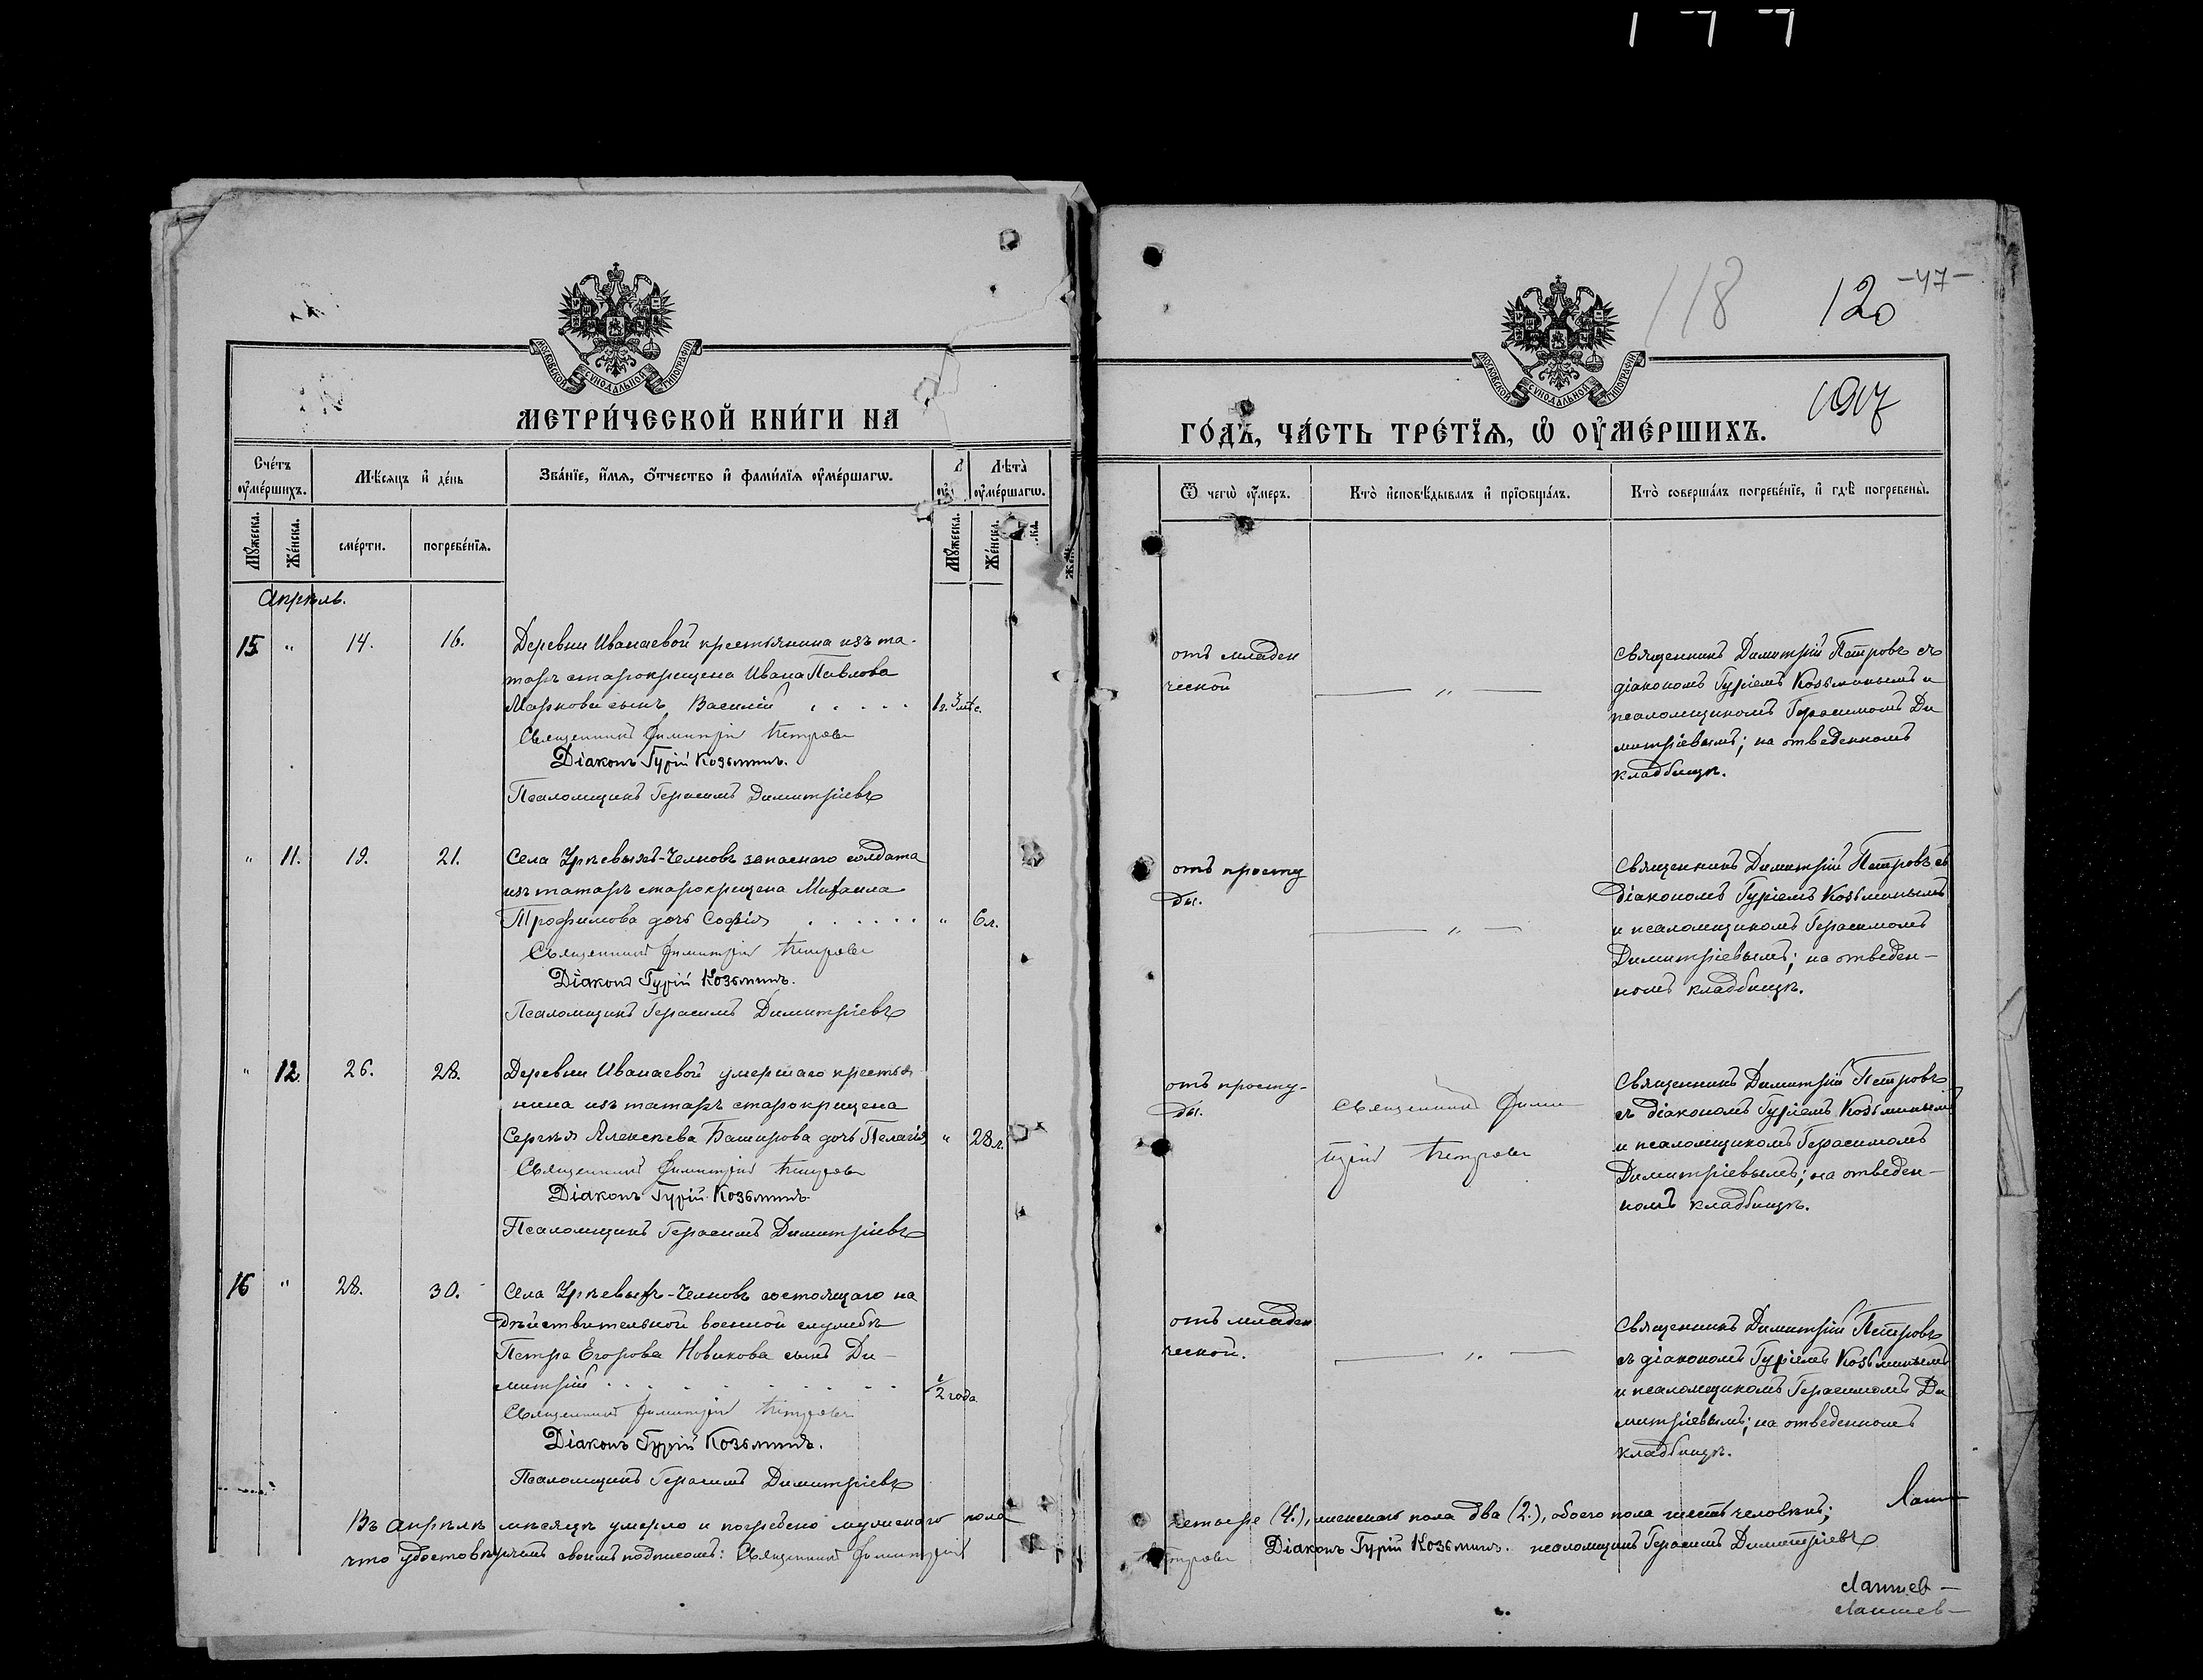 118
120
-47-
МОСКОВСКОЙ СѴНОДАЛЬНОЙ ТИПОГРАФІИ
МОСКОВСКОЙ СѴНОДАЛЬНОЙ ТИПОГРАФІИ
МЕТРИ́ЧЕСКОЙ КНИ́ГИ НА
ГО́ДЪ, ЧА́СТЬ ТРЕ́ТЇѦ, Ѡ҆ ОУ҆МЕ́РШИХЪ.
1917
Сче́тъ оу҆ме́ршихъ.
Мѣ́сѧцъ и҆ де́нь
Зва́нїе, и҆́мѧ, ѻ҆́тчество и҆ фами́лїѧ оу҆ме́ршагѡ.
Лѣта̀ оу҆ме́ршагѡ.
Ѿ чегѡ̀ оу҆́меръ.
Кто̀ и҆сповѣ́дывалъ и҆ прїѡбща́лъ.
Кто̀ соверша́лъ погребе́нїе, и҆ гдѣ̀ погребены̀.
Мꙋ́жеска.
Же́нска.
сме́рти.
погребе́нїѧ.
Мꙋ́жеска.
Же́нска.
Апрѣль.
15. " 14. 16.
Деревни Иванаевой крестьянина изъ та-
таръ старокрещена Ивана Павлова
Маркова сынъ Василій . . . . . 1г. 3 мѣс.
Священникъ Димитрій Петровъ
Діаконъ Гурій Козьминъ.
Псаломщикъ Герасимъ Димитріевъ
отъ младен
ческой
— " —
Священникъ Димитрій Петровъ съ
діакономъ Гуріемъ Козьминымъ и
псаломщикомъ Герасимомъ Ди
митріевымъ; на отведенномъ
кладбищѣ.
" 11. 19. 21.
Села Урѣевыхъ-Челновъ запаснаго солдата
изъ татаръ старокрещена Михаила
Трофимова дочь Софія . . . . . . " 6 л.
Священникъ Димитрій Петровъ
Діаконъ Гурій Козьминъ.
Псаломщикъ Герасимъ Димитріевъ
отъ просту
ды.
— " —
Священникъ Димитрій Петровъ съ
діакономъ Гуріемъ Козьминымъ
и псаломщикомъ Герасимомъ
Димитріевымъ; на отведен-
номъ кладбищѣ.
" 12 26. 28.
Деревни Иванаевой умершаго крестья-
нина изъ татаръ старокрещена
Сергѣя Алексѣева Баширова дочь Пелагія " 28 л.
Священникъ Димитрій Петровъ
Діаконъ Гурій Козьминъ.
Псаломщикъ Герасимъ Димитріевъ
отъ просту-
ды.
Священникъ Дими
трій Петровъ
Священникъ Димитрій Петровъ
съ діакономъ Гуріемъ Козьминымъ
и псаломщикомъ Герасимомъ
Димитріевымъ; на отведен-
номъ кладбищѣ.
16 " 28. 30.
Села Урѣевыхъ-Челновъ состоящаго на
дѣйствительной военной службѣ
Петра Егорова Новикова сынъ Ди-
митрій . . . . . . . . . 1/2 года
Священникъ Димитрій Петровъ
Діаконъ Гурій Козьминъ.
Псаломщикъ Герасимъ Димитріевъ
отъ младен
ческой.
— " —
Священникъ Димитрій Петровъ
съ діакономъ Гуріемъ Козьминымъ
и псаломщикомъ Герасимомъ Ди
митріевымъ; на отведенномъ
кладбищѣ.
Въ апрѣлѣ мѣсяцѣ умерло и погребено мужскаго пола четыре (4.), женскаго пола два (2.), обоего пола шесть человѣкъ;
что удостовѣряемъ своимъ подписомъ: Священникъ Димитрій Петровъ Діаконъ Гурій Козьминъ. псаломщикъ Герасимъ Димитріевъ